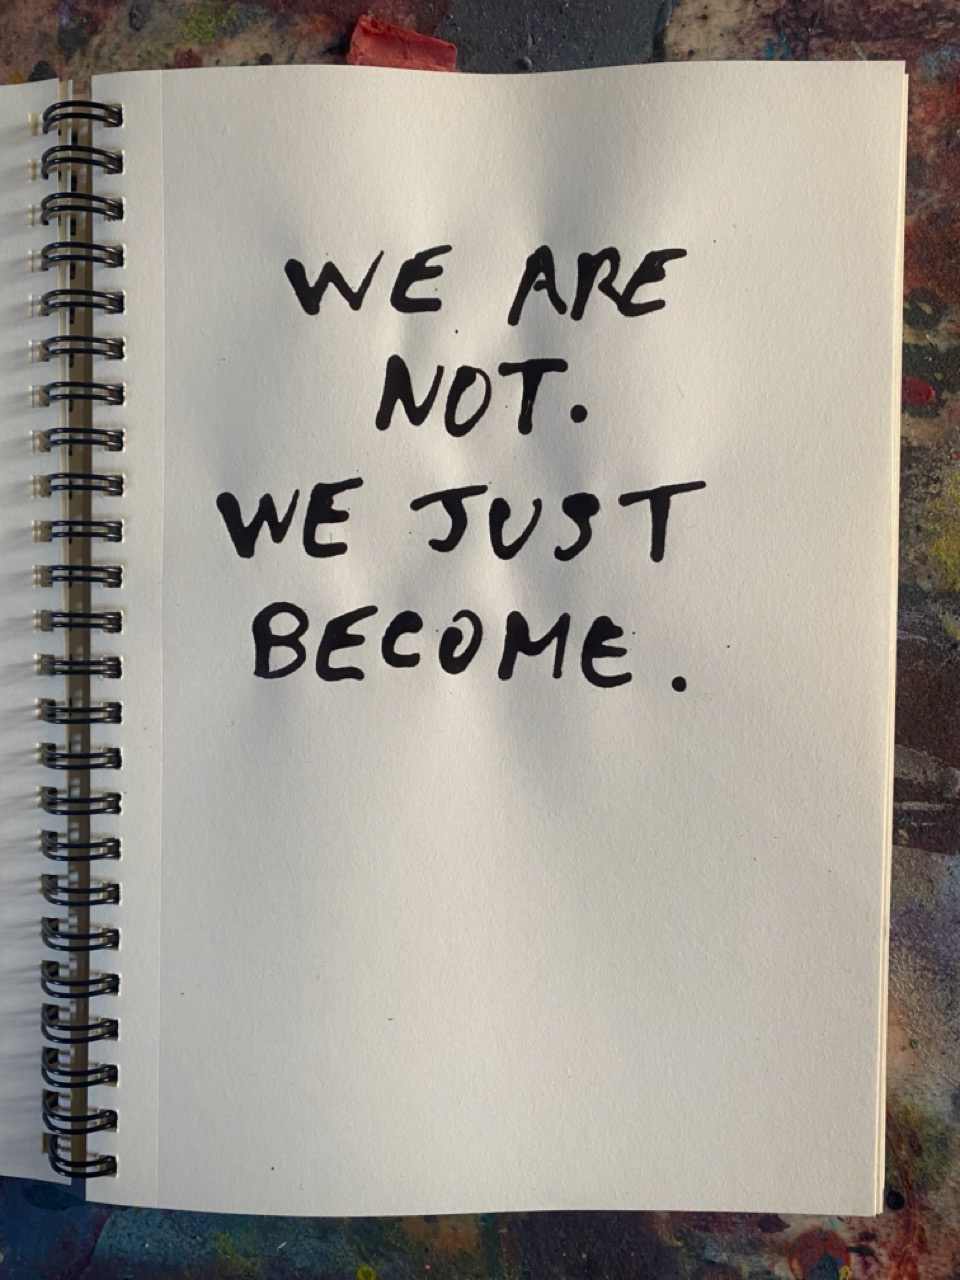 WE ARE
NOT.
WE JUST
BECOME.